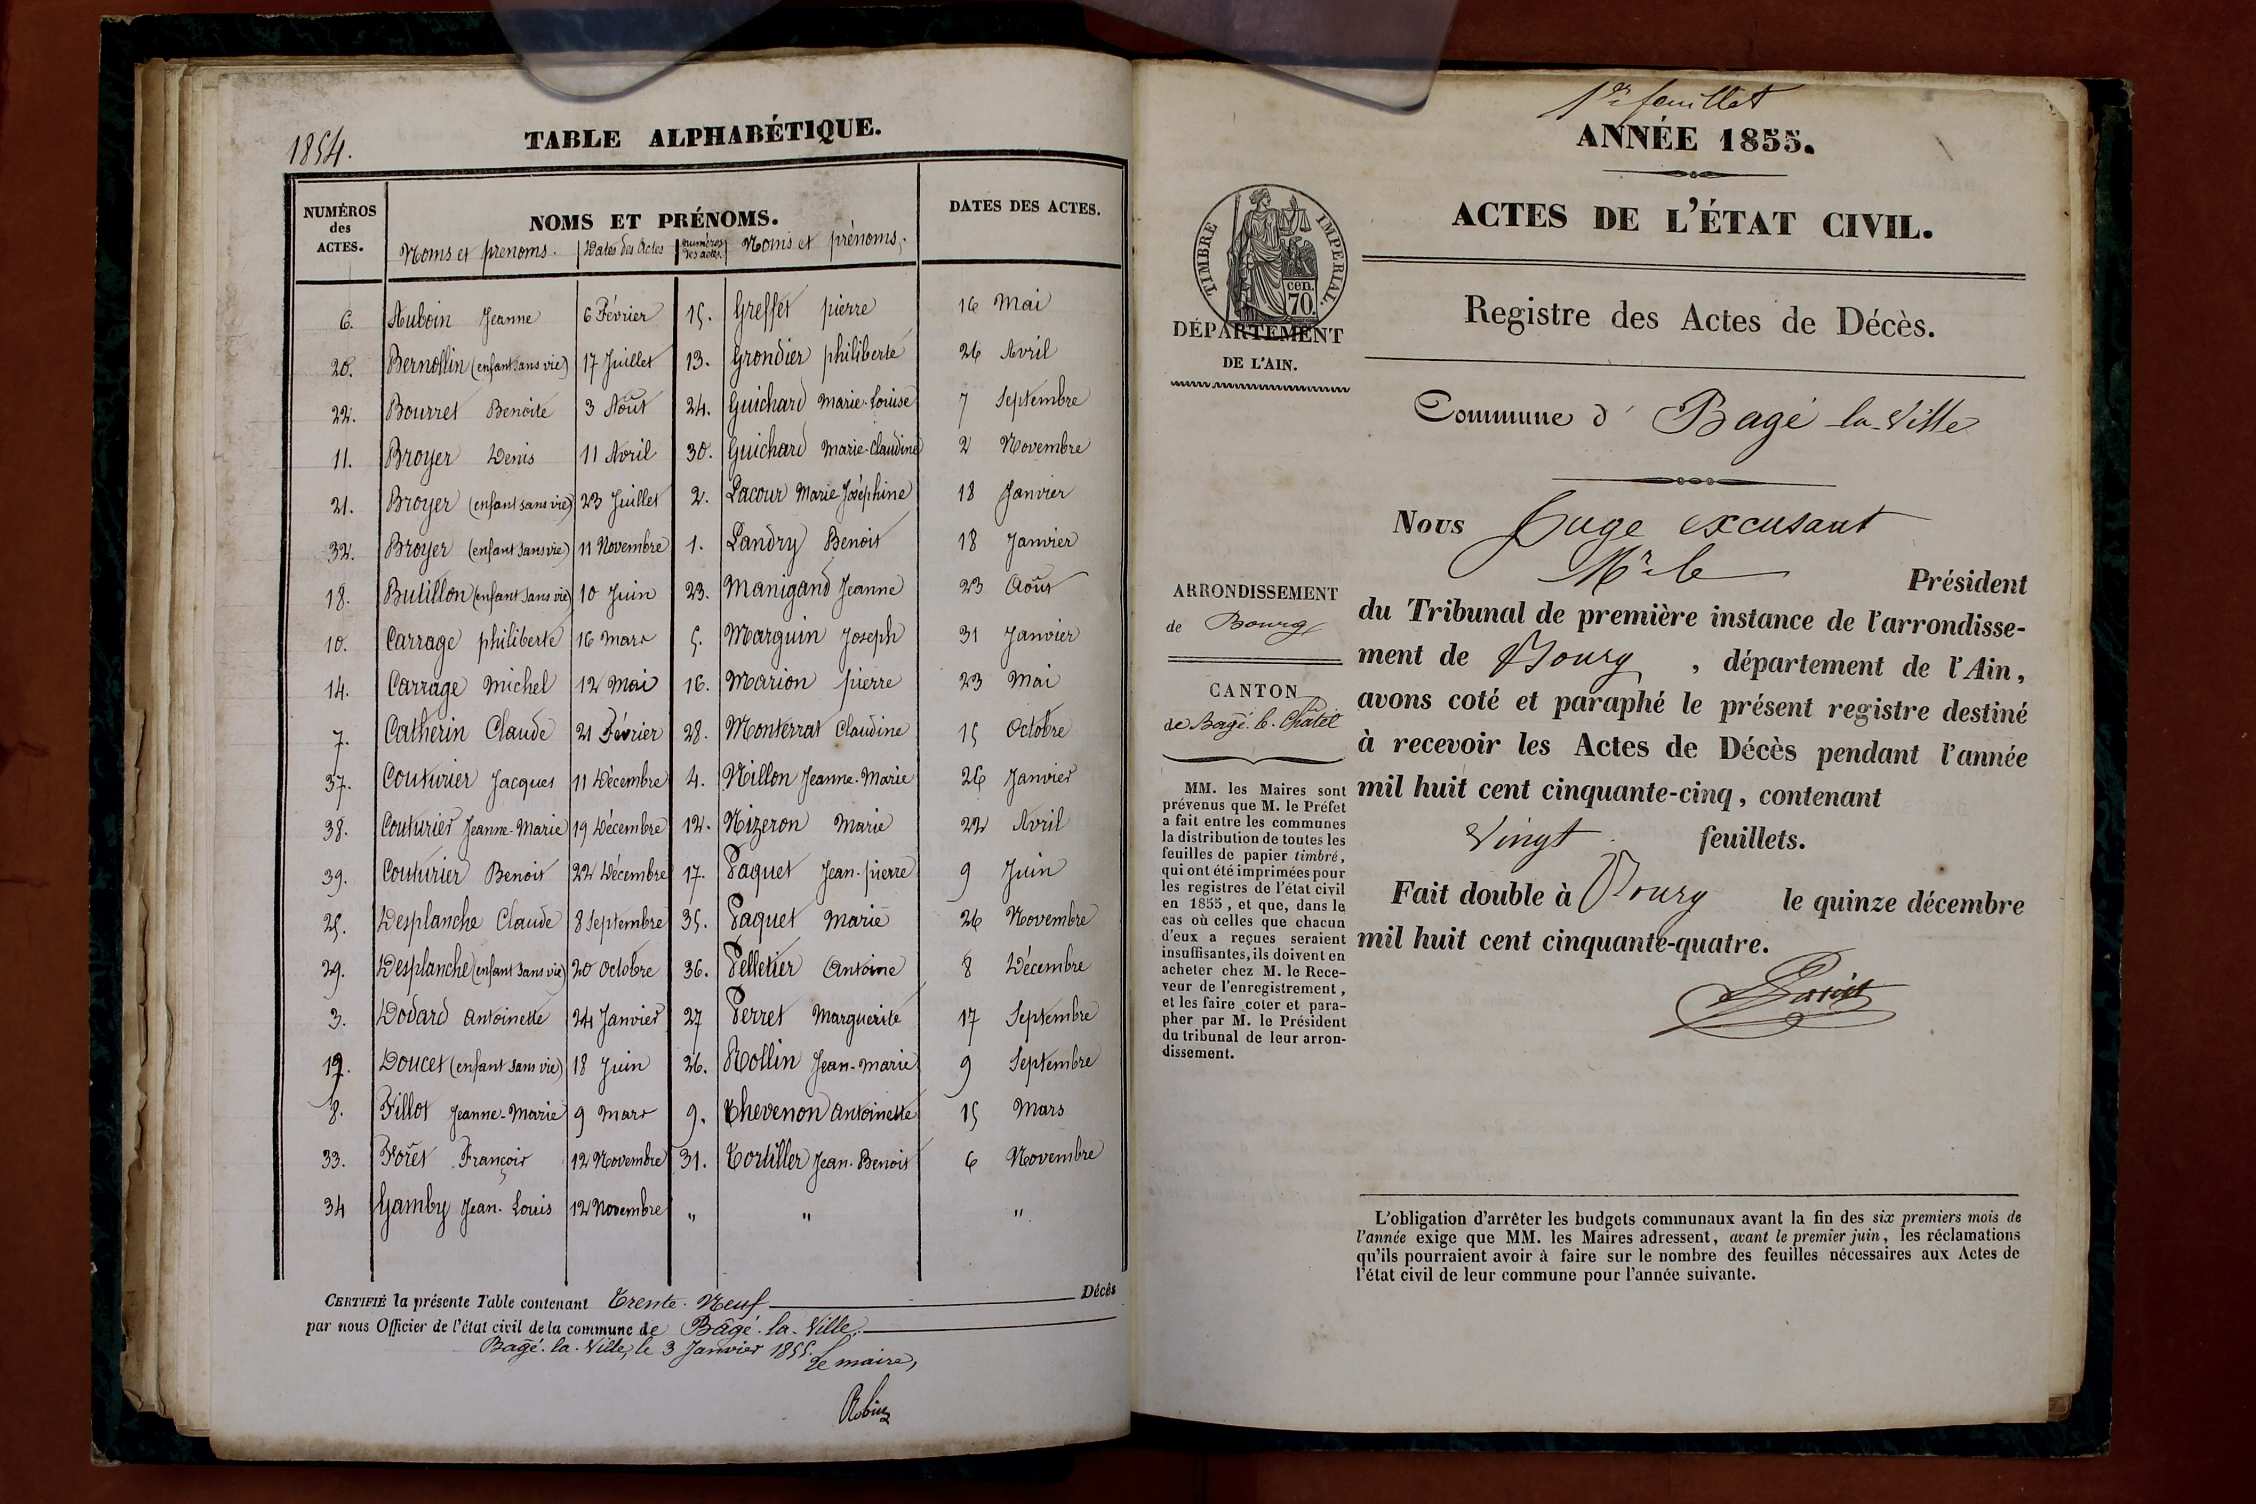 1854.
TABLE ALPHABÉTIQUE.
NUMÉROS des ACTES.
NOMS ET PRÉNOMS.
DATES DES ACTES.
Noms et prénoms. Dates des Actes numéros des actes Noms et prénoms.
6. Auboin Jeanne 6 Février 15. Greffet pierre 16 Mai
20. Bernollin (enfant sans vie) 17 Juillet 13. Grondier philiberte 26 Avril
22. Bourret Benoite 3 Août 24. Guichard Marie-Louise 7 Septembre
11. Broyer Denis 11 Avril 30. Guichard Marie-Claudine 2 Novembre
21. Broyer (enfant sans vie) 23 Juillet 2. Lacour Marie Joséphine 18 Janvier
32. Broyer (enfant sans vie) 11 Novembre 1. Landry Benoit 18 Janvier
18. Butillon (enfant sans vie) 10 Juin 23. Manigand Jeanne 23 Août
10. Carrage philiberte 16 Mars 5. Marguin Joseph 31 Janvier
14. Carrage Michel 12 Mai 16. Marion pierre 23 Mai
7. Catherin Claude 21 Février 28. Monterrat Claudine 15 Octobre
37. Couturier Jacques 11 Décembre 4. Nillon Jeanne-Marie 26 Janvier
38. Couturier Jeanne-Marie 19 Décembre 12. Nizeron Marie 22 Avril
39. Couturier Benoit 22 Décembre 17. Paquet Jean-pierre 9 Juin
25. Desplanche Claude 8 Septembre 35. Paquet Marie 26 Novembre
29. Desplanche (enfant sans vie) 20 Octobre 36. Pelletier Antoine 8 Décembre
3. Dodard Antoinette 24 Janvier 27 Perret Marguerite 17 Septembre
19. Doucet (enfant sans vie) 18 Juin 26. Rollin Jean-Marie 9 Septembre
8. Fillot Jeanne-Marie 9 Mars 9. Thevenon Antoinette 15 Mars
33. Forêt François 12 Novembre 31. Tortiller Jean-Benoit 6 Novembre
34 Gamby Jean-Louis 12 Novembre " " "
CERTIFIÉ la présente Table contenant Trente-Neuf Décès
par nous Officier de l'état civil de la commune de Bâgé-la-Ville.
Bagé-la-Ville, le 3 Janvier 1855.
Le maire,
Robin
1er feuillet
ANNÉE 1855.
ACTES DE L'ÉTAT CIVIL.
TIMBRE IMPERIAL.
cen.
70.
DÉPARTEMENT
DE L'AIN.
Registre des Actes de Décès.
Commune d' Bagé-la-Ville
Nous Juge excusant
Mr le Président
du Tribunal de première instance de l'arrondisse-
ment de Bourg, département de l'Ain,
avons coté et paraphé le présent registre destiné
à recevoir les Actes de Décès pendant l'année
mil huit cent cinquante-cinq, contenant
Vingt feuillets.
Fait double à Bourg le quinze décembre
mil huit cent cinquante-quatre.
ARRONDISSEMENT
de Bourg
CANTON
de Bagé-le-Châtel
MM. les Maires sont
prévenus que M. le Préfet
a fait entre les communes
la distribution de toutes les
feuilles de papier timbré,
qui ont été imprimées pour
les registres de l'état civil
en 1855, et que, dans le
cas où celles que chacun
d'eux a reçues seraient
insuffisantes, ils doivent en
acheter chez M. le Rece-
veur de l'enregistrement,
et les faire coter et para-
pher par M. le Président
du tribunal de leur arron-
dissement.
L'obligation d'arrêter les budgets communaux avant la fin des six premiers mois de
l'année exige que MM. les Maires adressent, avant le premier juin, les réclamations
qu'ils pourraient avoir à faire sur le nombre des feuilles nécessaires aux Actes de
l'état civil de leur commune pour l'année suivante.